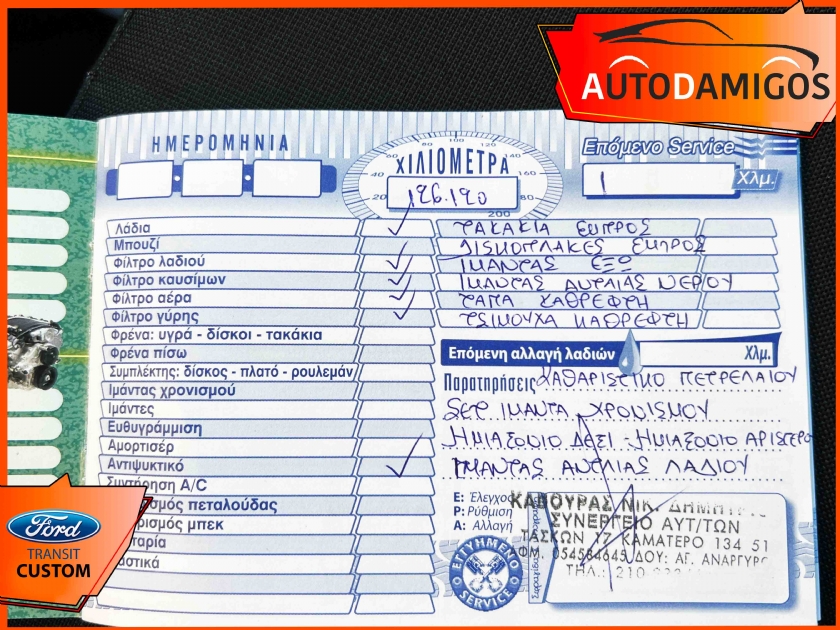 AUTODAMIGOS
ΗΜΕΡΟΜΗΝΙΑ
ΧΙΛΙΟΜΕΤΡΑ
Επόμενο Service
20 40 60 80 100 120 140 160 180 200
126.120
Χλμ.
Λάδια
Μπουζί
Φίλτρο λαδιού
Φίλτρο καυσίμων
Φίλτρο αέρα
Φίλτρο γύρης
Φρένα: υγρά - δίσκοι - τακάκια
Φρένα πίσω
Συμπλέκτης: δίσκος - πλατό - ρουλεμάν
Ιμάντας χρονισμού
Ιμάντες
Ευθυγράμμιση
Αμορτισέρ
Αντιψυκτικό
Συντήρηση A/C
ισμός πεταλούδας
ρισμός μπεκ
ταρία
αστικά
ΤΑΚΑΚΙΑ ΕΜΠΡΟΣ
ΔΙΣΚΟΠΛΑΚΕΣ ΕΜΠΡΟΣ
ΙΜΑΝΤΑΣ ΕΞΩ
ΙΜΑΝΤΑΣ ΑΝΤΛΙΑΣ ΝΕΡΟΥ
ΤΑΠΑ ΚΑΘΡΕΦΤΗ
ΤΣΙΜΟΥΧΑ ΚΑΘΡΕΦΤΗ
Επόμενη αλλαγή λαδιών Χλμ.
Παρατηρήσεις ΚΑΘΑΡΙΣΤΙΚΟ ΠΕΤΡΕΛΑΙΟΥ
ΣΕΤ ΙΜΑΝΤΑ ΧΡΟΝΙΣΜΟΥ
ΗΜΙΑΞΟΝΙΟ ΔΕΞΙ - ΗΜΙΑΞΟΝΙΟ ΑΡΙΣΤΕΡΟ
ΙΜΑΝΤΑΣ ΑΝΤΛΙΑΣ ΛΑΔΙΟΥ
Ε: Έλεγχος
Ρ: Ρύθμιση
Α: Αλλαγή
ΕΓΓΥΗΜΕΝΟ SERVICE
ΚΑΒΟΥΡΑΣ ΝΙΚ. ΔΗΜΗΤΡ
ΣΥΝΕΡΓΕΙΟ ΑΥΤ/ΤΩΝ
ΤΑΣΚΩΝ 17 ΚΑΜΑΤΕΡΟ 134 51
ΑΦΜ. 054584645 ΔΟΥ: ΑΓ. ΑΝΑΡΓΥΡΟ
ΤΗΛ.: 210
Ford
TRANSIT
CUSTOM